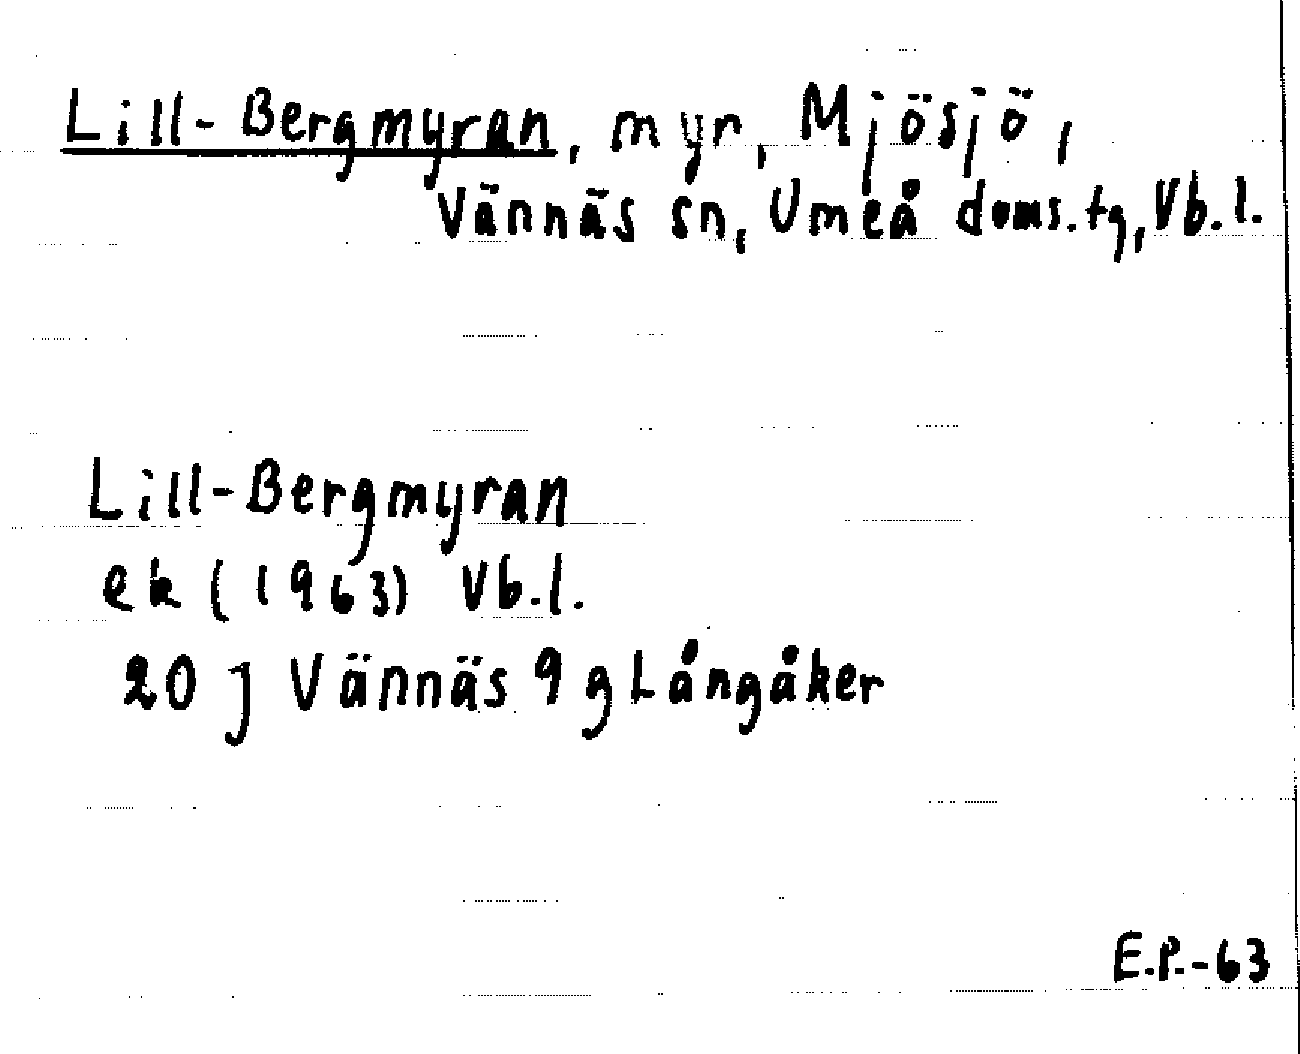 Lill-Bergmyran, myr, Mjösjö,
Vännäs sn, Umeå doms.tg, Vb.l.
Lill-Bergmyran
ek (1963) Vb.l.
20 J Vännäs 9 g Långåker
E.P.-63